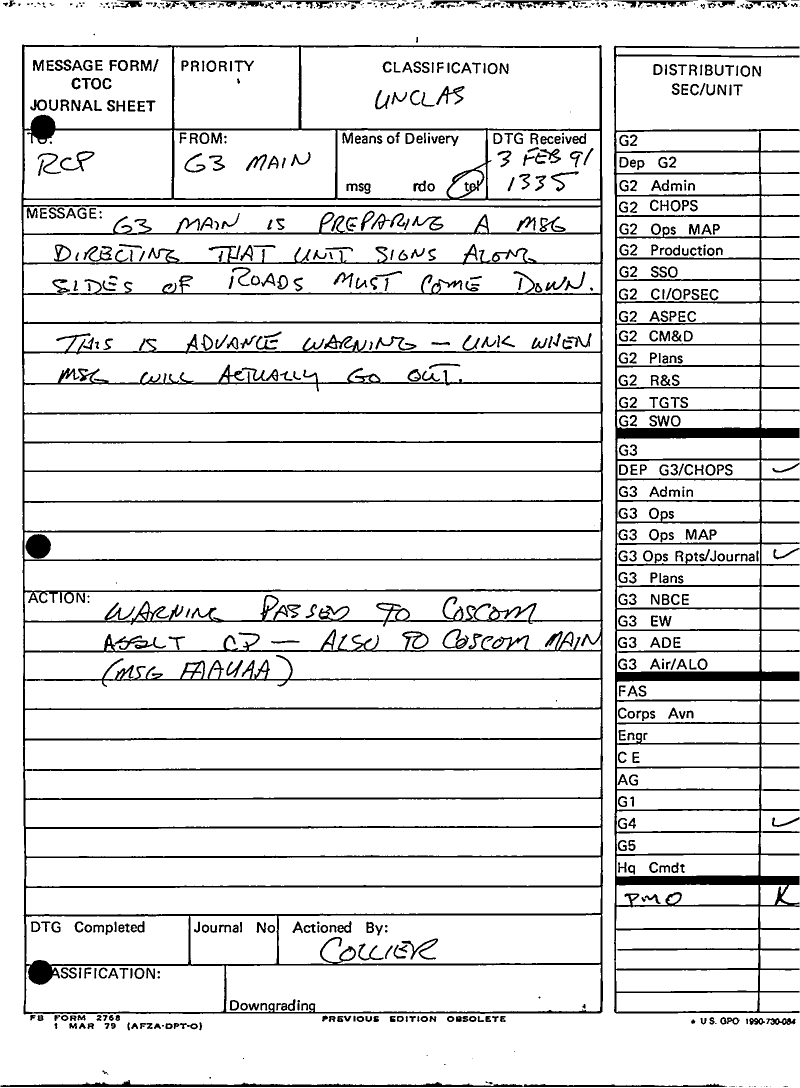 MESSAGE FORM/ CTOC JOURNAL SHEET
PRIORITY
CLASSIFICATION
UNCLAS
TO:
RCP
FROM:
G3 MAIN
Means of Delivery
msg rdo tel
DTG Received
3 FEB 91
1335
MESSAGE: G3 MAIN IS PREPARING A MSG
DIRECTING THAT UNIT SIGNS ALONG
SIDES OF ROADS MUST COME DOWN.
THIS IS ADVANCE WARNING – UNK WHEN
MSG WILL ACTUALLY GO OUT.
ACTION: WARNING PASSED TO COSCOM
ASSLT CP – ALSO TO COSCOM MAIN
(MSG FAAUAA)
DTG Completed
Journal No
Actioned By:
COLLIER
ASSIFICATION:
Downgrading
FB FORM 2768
1 MAR 79 (AFZA-DPT-O)
PREVIOUS EDITION OBSOLETE
DISTRIBUTION
SEC/UNIT
G2
Dep G2
G2 Admin
G2 CHOPS
G2 Ops MAP
G2 Production
G2 SSO
G2 CI/OPSEC
G2 ASPEC
G2 CM&D
G2 Plans
G2 R&S
G2 TGTS
G2 SWO
G3
DEP G3/CHOPS ✓
G3 Admin
G3 Ops
G3 Ops MAP
G3 Ops Rpts/Journal ✓
G3 Plans
G3 NBCE
G3 EW
G3 ADE
G3 Air/ALO
FAS
Corps Avn
Engr
C E
AG
G1
G4 ✓
G5
Hq Cmdt
PMO
* U S. GPO 1990-730-084